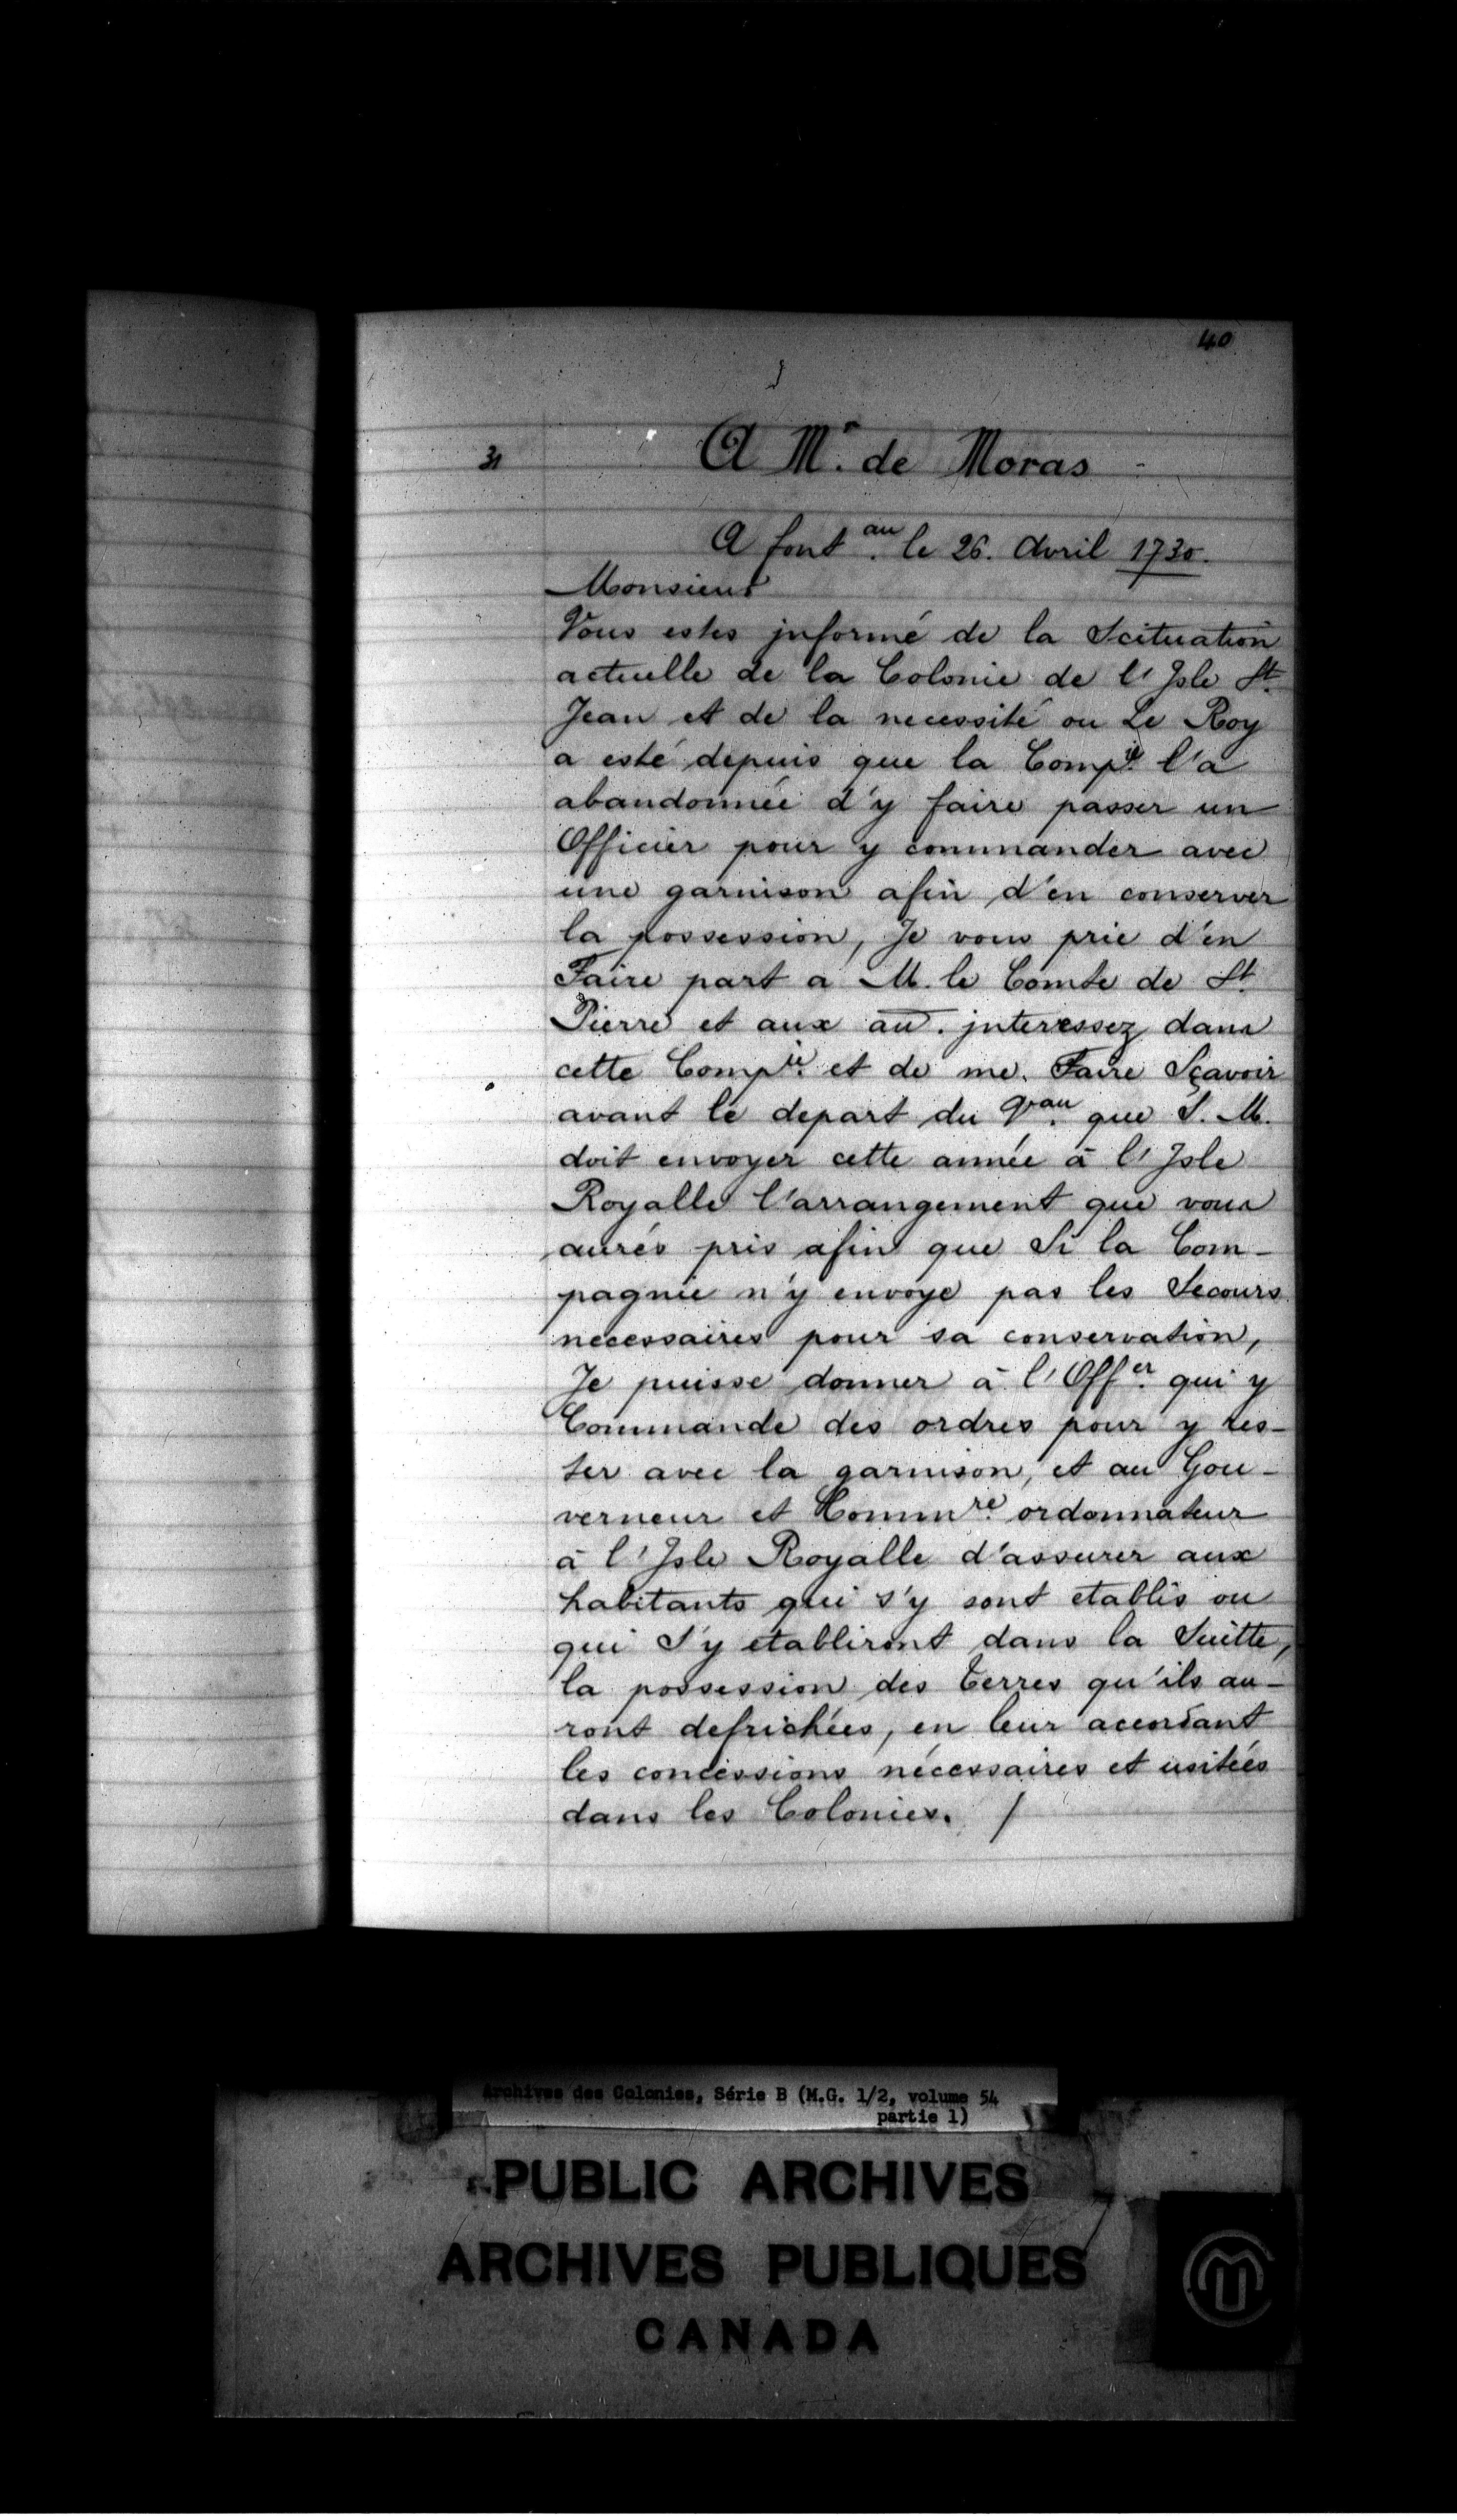 40
31
A Mr. de Moras
A font.au le 26. Avril 1730.
Monsieur
Vous estes jnformé de la Scituation
actuelle de la Colonie de l'Jsle St.
Jean et de la necessité ou Le Roy
a esté depuis que la Compie. l'a
abandonnée d'y faire passer un
Officier pour y commander avec
une garnison afin d'en conserver
la possession, Je vous prie d'en
Faire part a M. le Comte de St.
Pierre et aux au. jnteressez dans
cette Compie. et de me. Faire Sçavoir
avant le depart du Vau. que S. M.
doit envoyer cette année à l'Jsle
Royalle l'arrangement que vous
aurés pris afin que Si la Com-
pagnie n'y envoye pas les Secours
necessaires pour sa conservation,
Je puisse donner à l'Offer. qui y
Commande des ordres pour y res-
ter avec la garnison, et au Gou-
verneur et Commre. ordonnateur
à l'Jsle Royalle d'assurer aux
habitants qui s'y sont etablis ou
qui S'y etabliront dans la Suitte,
la possession des terres qu'ils au-
ront defrichées, en leur accordant
les concessions nécessaires et usitées
dans les Colonies. /
Archives des Colonies, Série B (M.G. 1/2, volume 54
partie 1)
PUBLIC ARCHIVES
ARCHIVES PUBLIQUES
CANADA